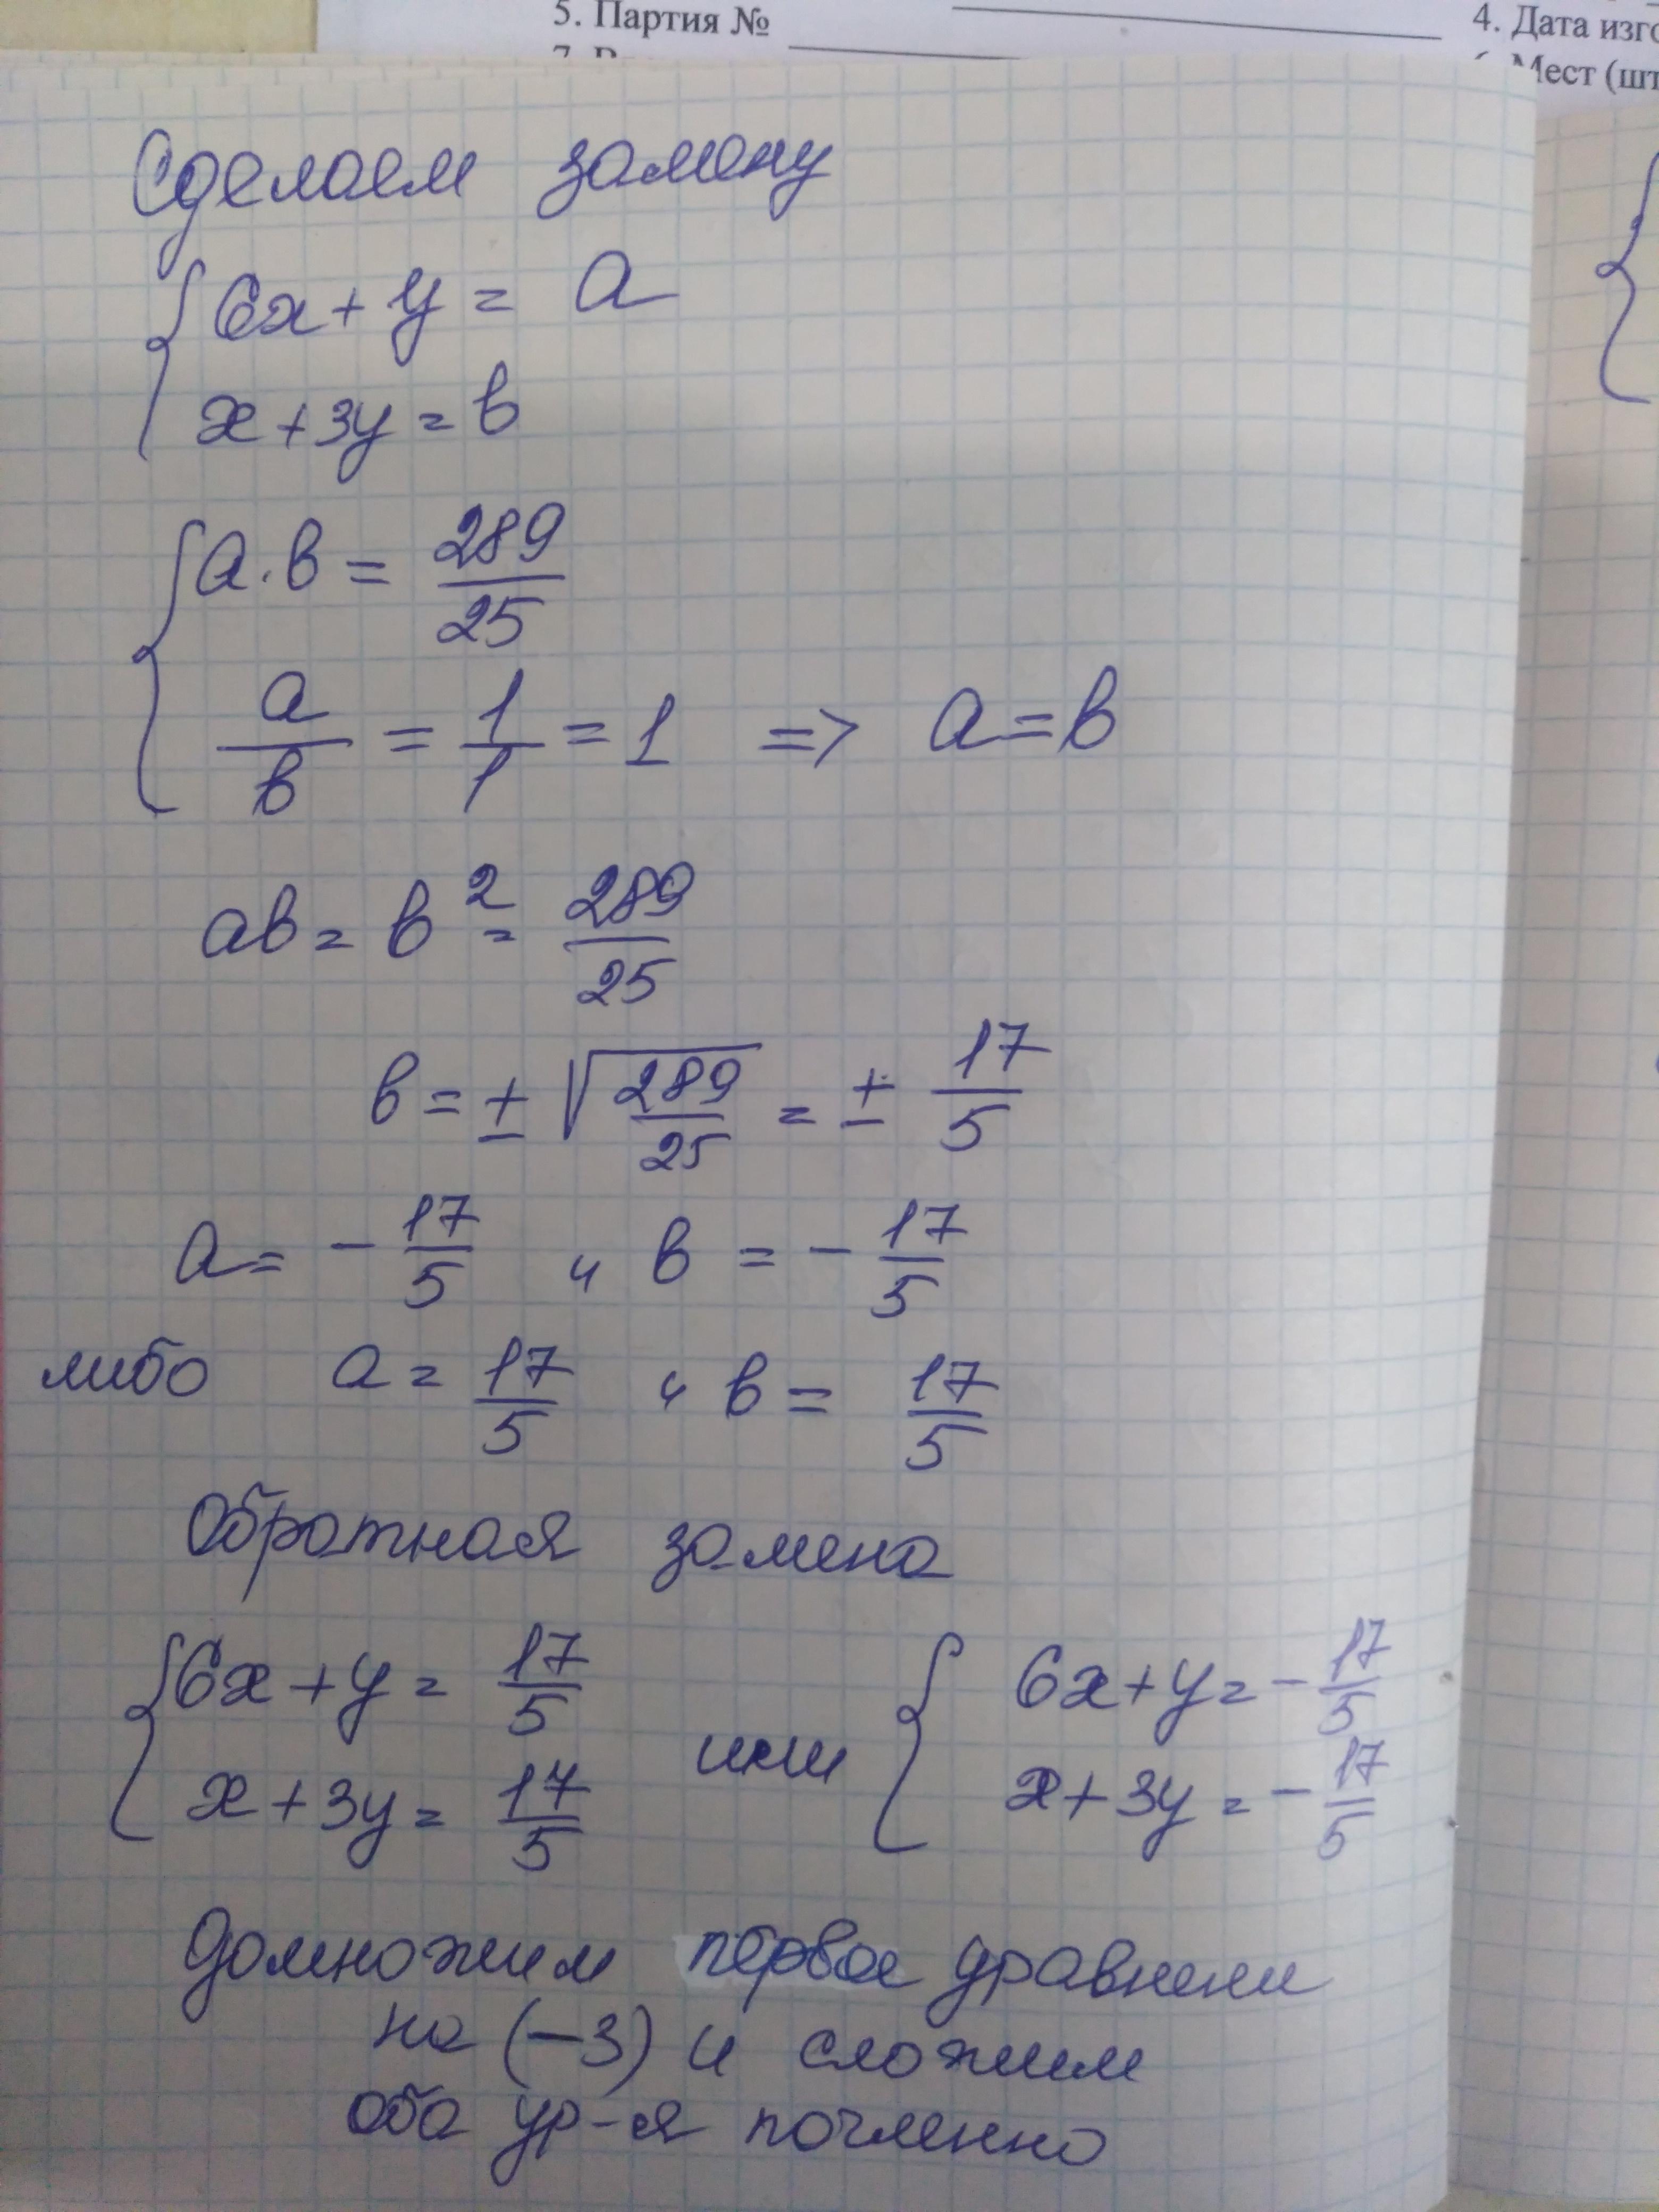 5. Партия №
4. Дата изго
Мест (шт
Сделаем замену
6x + y = a
x + 3y = b
a · b = 289/25
a/b = 1/1 = 1 => a = b
ab = b² = 289/25
b = ± √(289/25) = ± 17/5
a = - 17/5 и b = - 17/5
либо a = 17/5 и b = 17/5
Обратная замена
6x + y = 17/5 или 6x + y = - 17/5
x + 3y = 17/5 x + 3y = - 17/5
Домножим первое уравнени
на (-3) и сложим
оба ур-я почленно